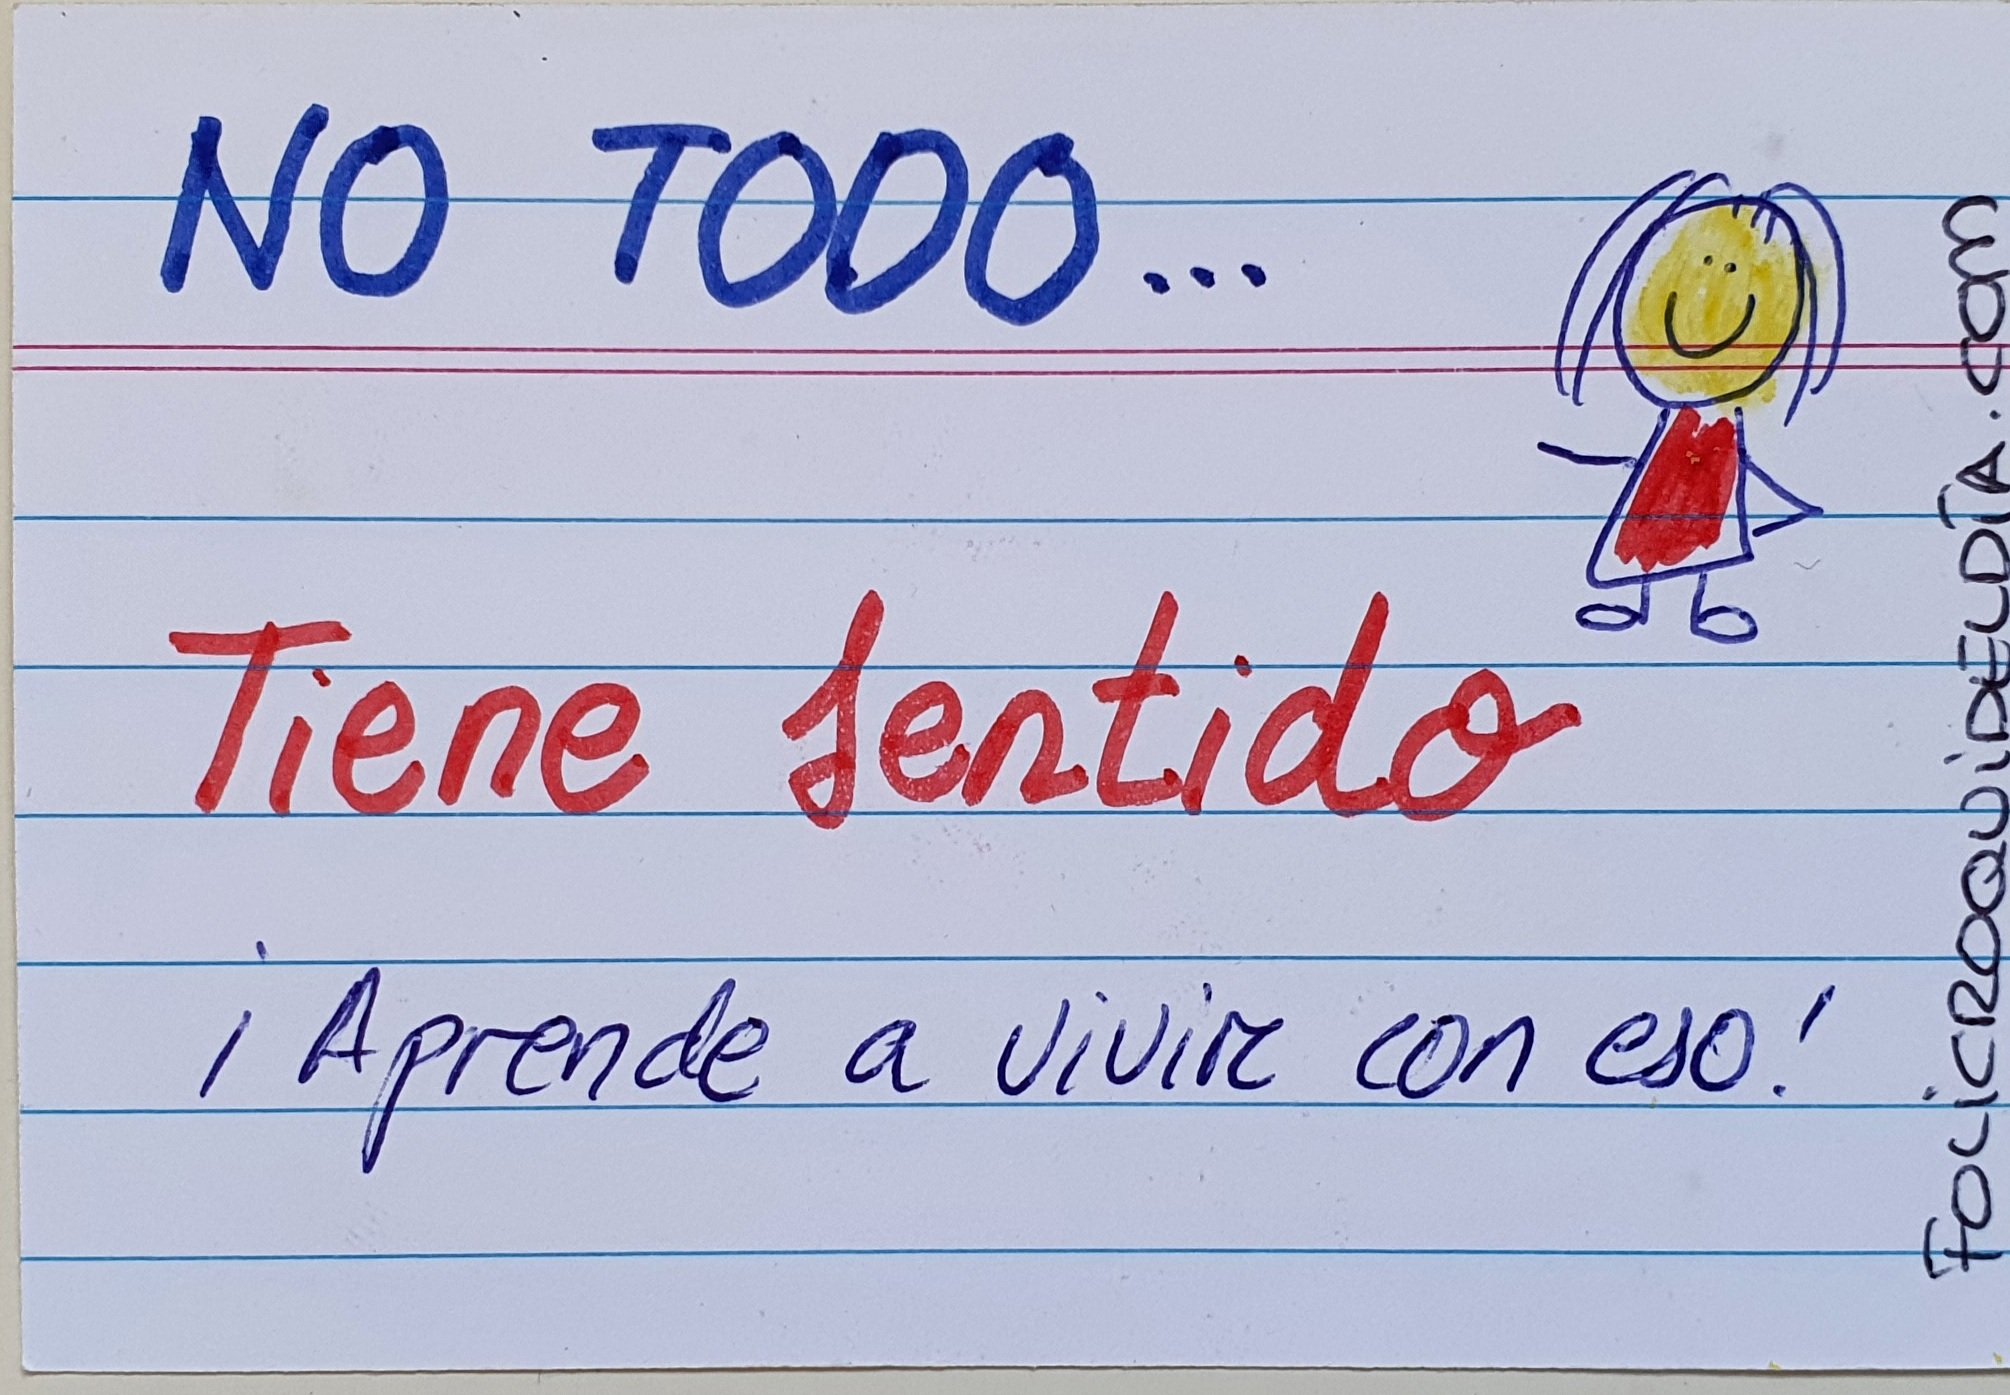 NO TODO...
Tiene sentido
¡Aprende a vivir con eso!
FOLICROQUIDELDÍA.com